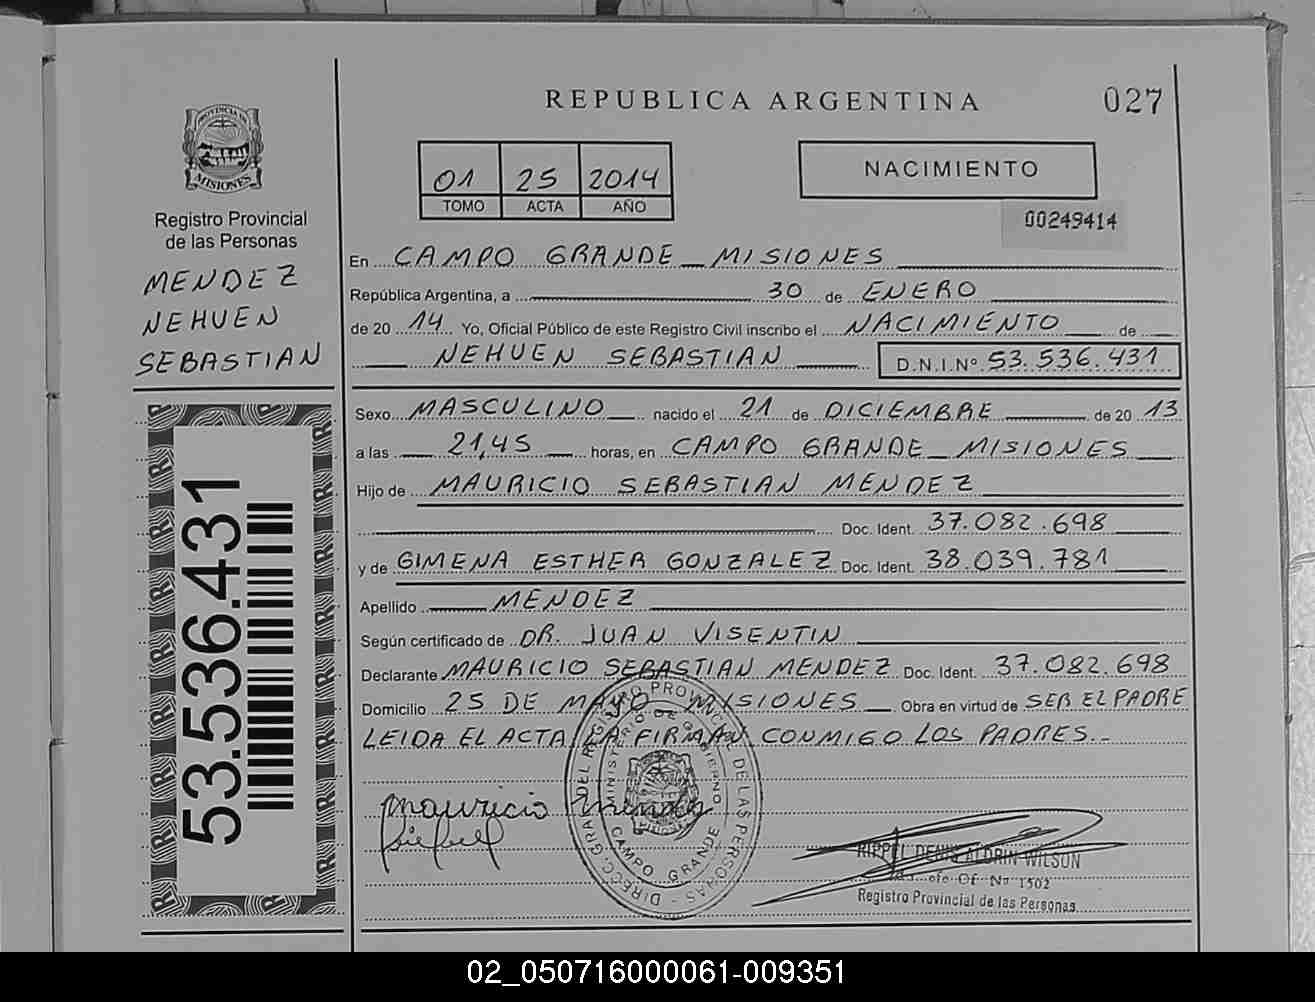 REPUBLICA ARGENTINA
027
PROVINCIA DE
MISIONES
Registro Provincial
de las Personas
MENDEZ
NEHUEN
SEBASTIAN
53.536.431
01 25 2014
TOMO ACTA AÑO
NACIMIENTO
00249414
En CAMPO GRANDE - MISIONES
República Argentina, a 30 de ENERO
de 20 14 Yo, Oficial Público de este Registro Civil inscribo el NACIMIENTO de
NEHUEN SEBASTIAN D.N.I.Nº 53.536.431
Sexo MASCULINO nacido el 21 de DICIEMBRE de 20 13
a las 21,45 horas, en CAMPO GRANDE - MISIONES
Hijo de MAURICIO SEBASTIAN MENDEZ
Doc. Ident. 37.082.698
y de GIMENA ESTHER GONZALEZ Doc. Ident. 38.039.781
Apellido MENDEZ
Según certificado de DR. JUAN VISENTIN
Declarante MAURICIO SEBASTIAN MENDEZ Doc. Ident. 37.082.698
Domicilio 25 DE MAYO - MISIONES Obra en virtud de SER EL PADRE
LEIDA EL ACTA, LA FIRMAN CONMIGO LOS PADRES.-
mauricio mendez
DIRECC. GRAL. DEL REGISTRO PROVINCIAL DE LAS PERSONAS
MINISTERIO DE GOBIERNO
CAMPO GRANDE
RIPPEL DENIS ALDRIN WILSON
Jefe Of. Nº 1502
Registro Provincial de las Personas
02_050716000061-009351